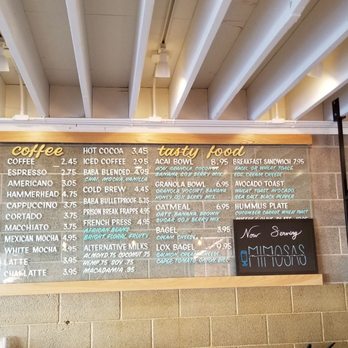 coffee
COFFEE 2.45
ESPRESSO 2.75
AMERICANO 3.05
HAMMERHEAD 4.75
CAPPUCCINO 3.75
CORTADO 3.75
MACCHIATO 3.75
MEXICAN MOCHA 4.95
WHITE MOCHA 4.95
LATTE 3.95
CHAI LATTE 3.95
HOT COCOA 3.45
ICED COFFEE 2.95
BABA BLENDED 4.95
CHAI, MOCHA, VANILLA
COLD BREW 4.45
BABA BULLETPROOF 5.15
PRISON BREAK FRAPPE 4.95
FRENCH PRESS 4.95
AFRICAN BEANS
BRIGHT, FLORAL, FRUITY
ALTERNATIVE MILKS
ALMOND .75 COCONUT .75
HEMP .75 SOY .75
MACADAMIA .95
tasty food
ACAI BOWL 8.95
BANANA, COCONUT
GRANOLA BOWL 7.95
GRANOLA, YOGURT, BANANA
HONEY, BERRY MIX
OATMEAL 6.95
OATS, BANANA, BROWN
SUGAR OR BERRY MIX
BAGEL
CREAM CHEESE
LOX BAGEL
SALMON, CREAM CHEESE
CAPERS, TOMATO, ONION, DILL
BREAKFAST SANDWICH 7.95
BAGEL OR WHEAT TOAST
EGG, CREAM CHEESE
AVOCADO TOAST
WHEAT TOAST, AVOCADO
SEA SALT, BLACK PEPPER
HUMMUS PLATE
CUCUMBER, CARROT, WHEAT TOAST
Now Serving
MIMOSAS